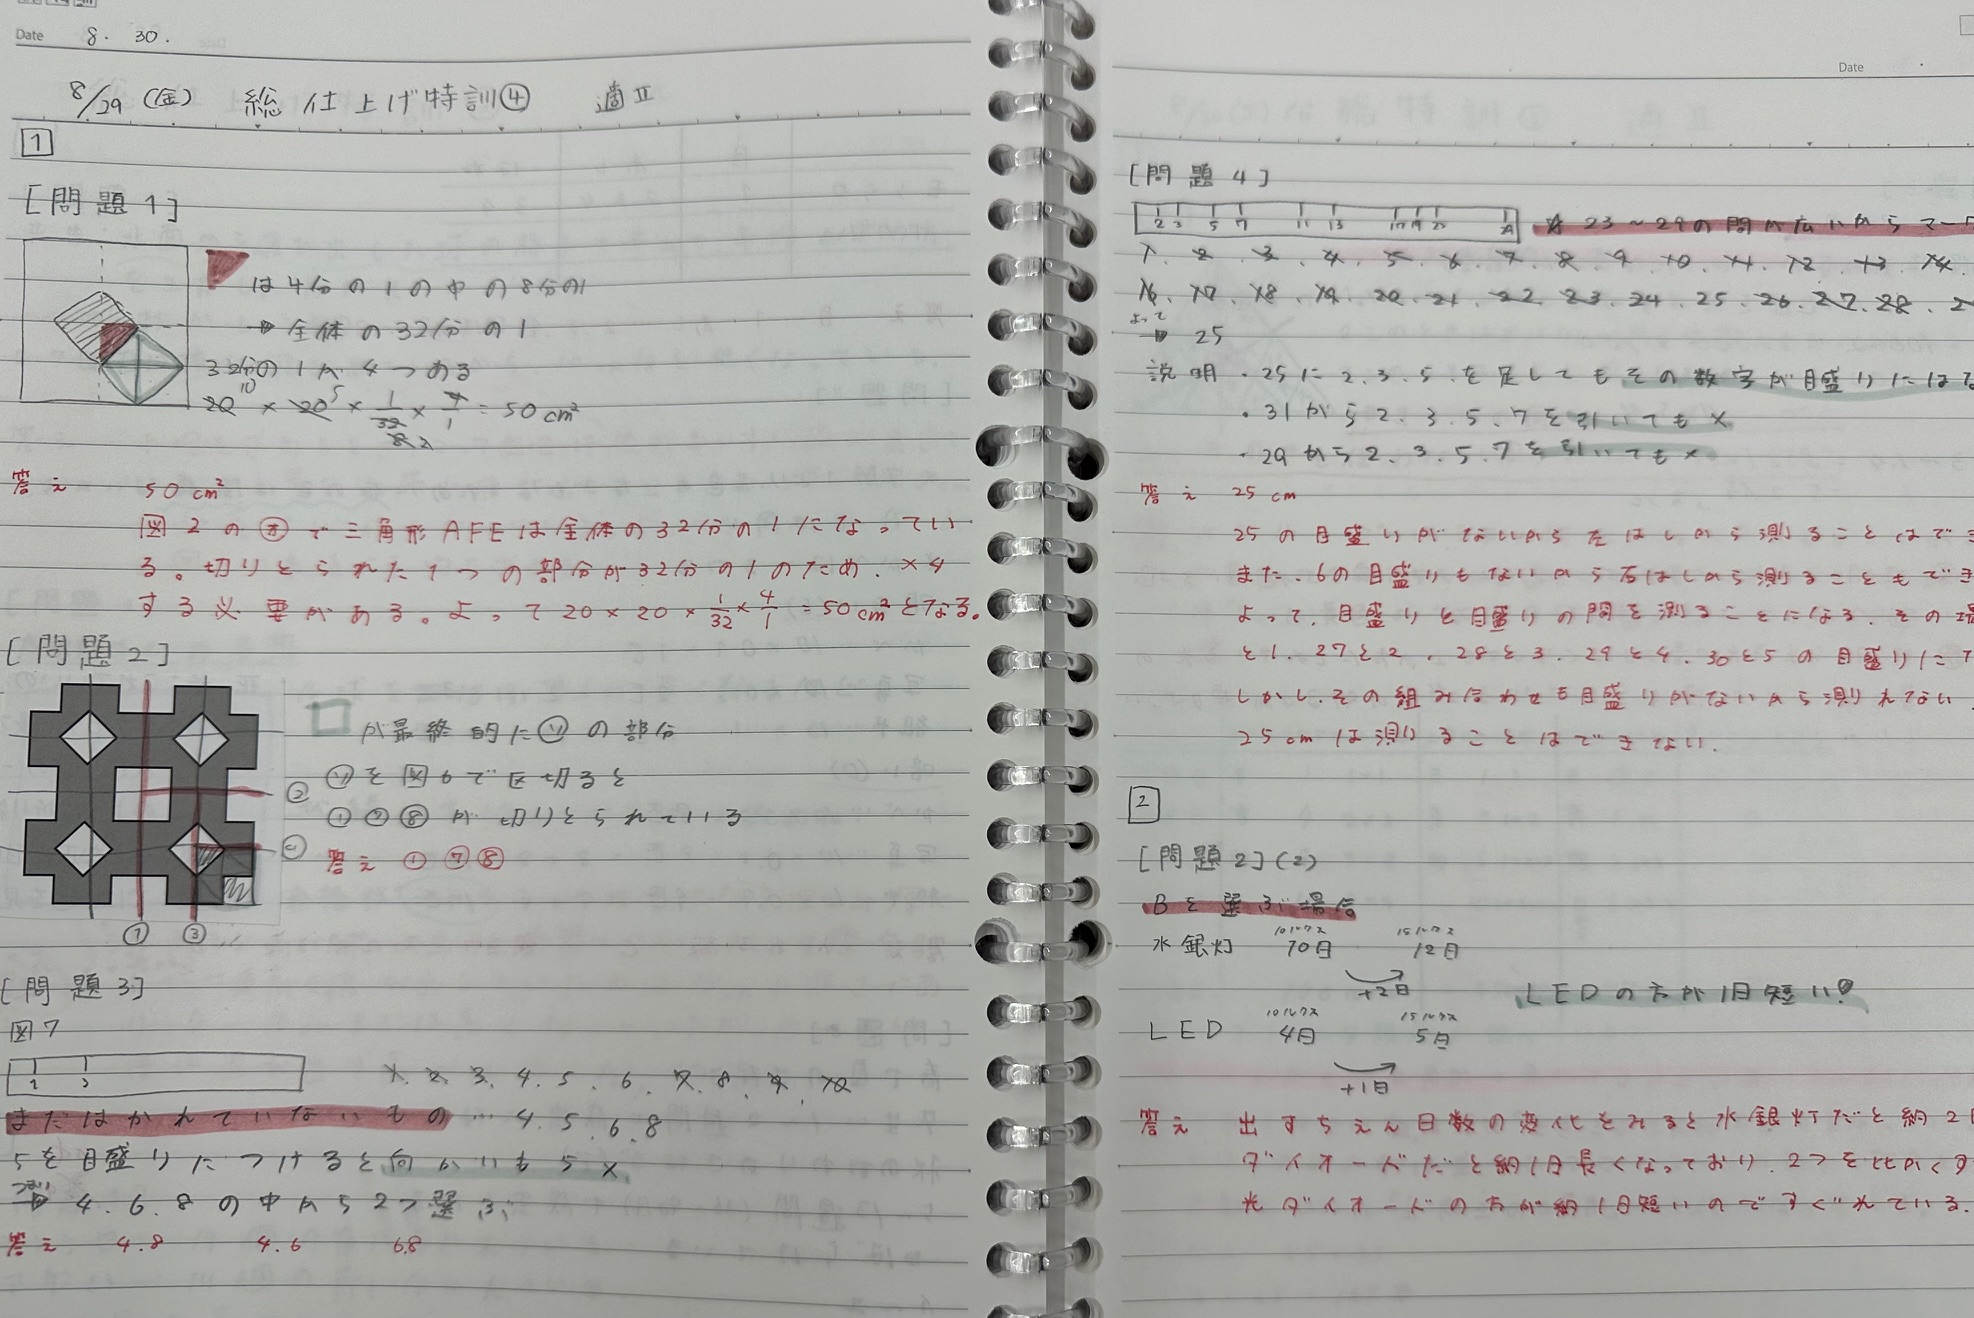 Date 8. 30.
8/29 (金) 総仕上げ特訓④ 適Ⅱ
1
[問題1]
は4分の1の中の8分の1
→ 全体の32分の1
32分の1が4つある
20 × 20 × 1/32 × 4/1 = 50 cm²
10 5
8 2
答え 50 cm²
図2の㋔で三角形AFEは全体の32分の1になってい
る。切りとられた1つの部分が32分の1のため、×4
する必要がある。よって20×20×1/32×4/1=50cm²となる。
[問題2]
が最終的に㋒の部分
㋒を図6で区切ると
①⑦⑧が切りとられている
答え ①⑦⑧
②
①
③
[問題3]
図7
1 3
1. 2. 3. 4. 5. 6. 7. 8. 9. 10
まだはかれていないもの… 4. 5. 6. 8
5を目盛りにつけると向かいも5 ×
つまり
→ 4. 6. 8の中から2つ選ぶ
答え 4.8 4.6 6.8
Date
[問題4]
2 3 5 7 11 13 17 19 23 29
☆ 23~29の間が広いから
1. 2. 3. 4. 5. 6. 7. 8. 9. 10. 11. 12. 13. 14.
16. 17. 18. 19. 20. 21. 22. 23. 24. 25. 26. 27. 28.
よって
→ 25
説明 ・25に2.3.5.を足してもその数字が目盛りには
・31から2.3.5.7を引いても×
・29から2.3.5.7を引いても×
答え 25 cm
25の目盛りがないから左はしから測ることはで
また、6の目盛りもないから右はしから測ることもで
よって、目盛りと目盛りの間を測ることになる。その
と1、27と2、28と3、29と4、30と5の目盛りに
しかし、その組み合わせも目盛りがないから測れない
25cmは測ることはできない.
2
[問題2](2)
Bを選ぶ場合
10ルクス 15ルクス
水銀灯 10日 12日
+2日
LEDの方が1日短い!
10ルクス 15ルクス
LED 4日 5日
+1日
答え 出すちえん日数の変化をみると水銀灯だと約2
ダイオードだと約1日長くなっており、2つを比かくす
光ダイオードの方が約1日短いのですぐれている.